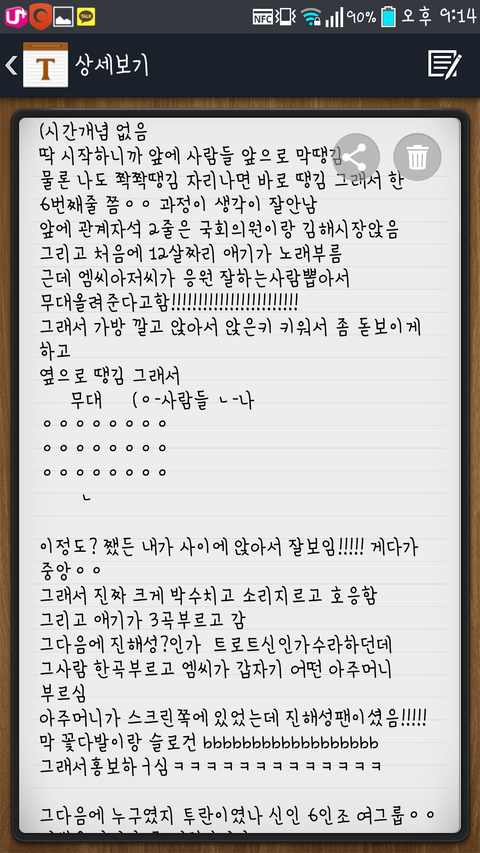 U+
TALK
NFC
90%
오후 9:14
T 상세보기
(시간개념 없음
딱 시작하니까 앞에 사람들 앞으로 막땡김
물론 나도 쫙쫙땡김 자리나면 바로 땡김 그래서 한
6번째줄 쯤ㅇㅇ 과정이 생각이 잘안남
앞에 관계자석 2줄은 국회의원이랑 김해시장앉음
그리고 처음에 12살짜리 애기가 노래부름
근데 엠씨아저씨가 응원 잘하는사람뽑아서
무대올려준다고함!!!!!!!!!!!!!!!!!!!!!!!!
그래서 가방 깔고 앉아서 앉은키 키워서 좀 돋보이게
하고
옆으로 땡김 그래서
무대 (ㅇ-사람들 ㄴ-나
ㅇㅇㅇㅇㅇㅇㅇㅇ
ㅇㅇㅇㅇㅇㅇㅇㅇ
ㅇㅇㅇㅇㅇㅇㅇㅇ
ㄴ
이정도? 쨌든 내가 사이에 앉아서 잘보임!!!!! 게다가
중앙ㅇㅇ
그래서 진짜 크게 박수치고 소리지르고 호응함
그리고 애기가 3곡부르고 감
그다음에 진해성?인가 트로트신인가수라하던데
그사람 한곡부르고 엠씨가 갑자기 어떤 아주머니
부르심
아주머니가 스크린쪽에 있었는데 진해성팬이셨음!!!!!
막 꽃다발이랑 슬로건 bbbbbbbbbbbbbbbbbb
그래서홍보하ㅓ심ㅋㅋㅋㅋㅋㅋㅋㅋㅋㅋㅋㅋㅋ
그다음에 누구였지 투란이였나 신인 6인조 여그룹ㅇㅇ